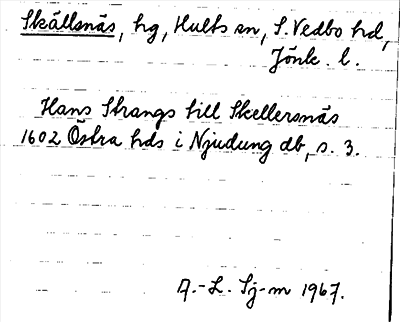 Skällsnäs, hg, Hults sn, S. Vedbo hd,
Jönk. l.
Hans Strangs till Skellersnäs
1602 Östra hds i Njudung db, s. 3.
A.-L. Sj-m 1967.